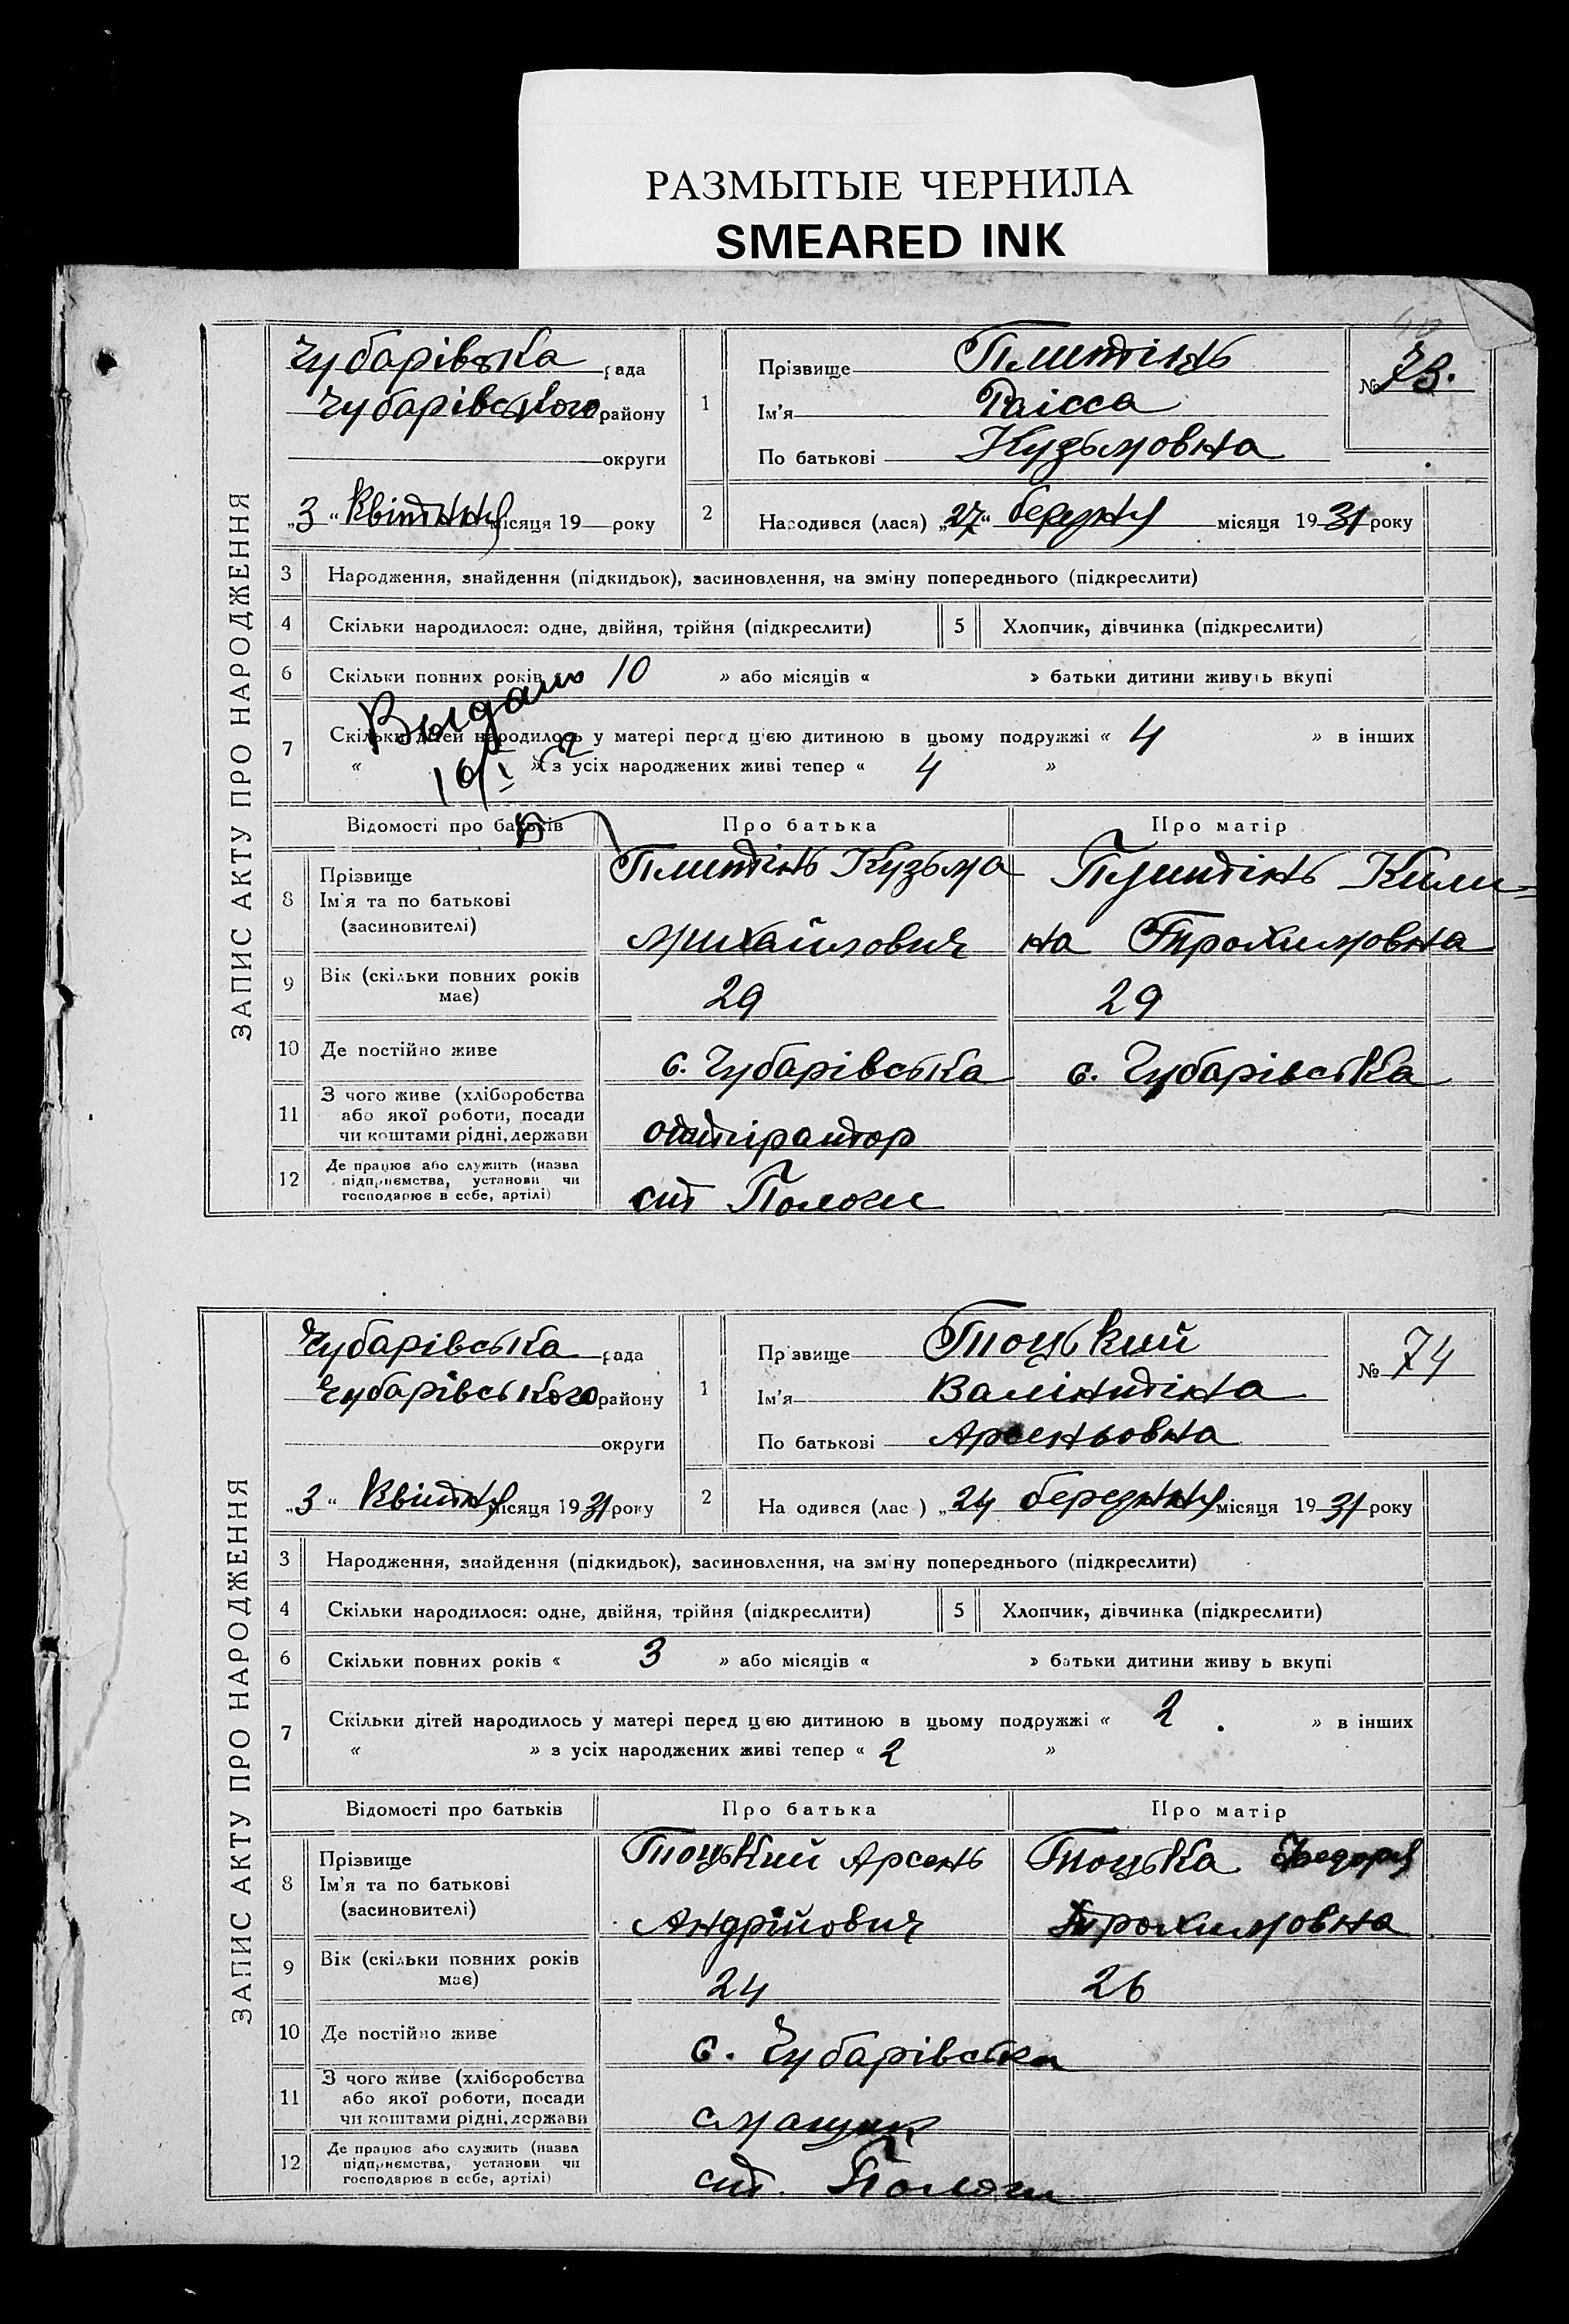 РАЗМЫТЫЕ ЧЕРНИЛА
SMEARED INK
ЗАПИС АКТУ ПРО НАРОДЖЕННЯ
Чубарівська рада
Чубарівського району
округи
„3“ Квітня місяця 19 року
1
Прізвище Плитінь
Ім'я Раісса
По батькові Кузьмовна
№ 73.
2
Народився (лася) „27“ березня місяця 1931 року
3 Народження, знайдення (підкидьок), засиновлення, на зміну попереднього (підкреслити)
4 Скільки народилося: одне, двійня, трійня (підкреслити)
5 Хлопчик, дівчинка (підкреслити)
6 Скільки повних років 10 » або місяців « » батьки дитини живуть вкупі
Выдано
7 Скільки дітей народилось у матері перед цією дитиною в цьому подружжі « 4 » в інших
« » з усіх народжених живі тепер « 4 »
Відомості про батьків
Про батька
Про матір
8 Прізвище
Ім'я та по батькові
(засиновителі)
Плитінь Кузьма
Михайлович
Плитінь Кили-
на Трохимовна
9 Вік (скільки повних років
має)
29
29
10 Де постійно живе
с. Чубарівська
с. Чубарівська
11 З чого живе (хліборобства
або якої роботи, посади
чи коштами рідні, держави
12 Де працює або служить (назва
підприємства, установи чи
господарює в себе, артілі)
ст Пологи
ЗАПИС АКТУ ПРО НАРОДЖЕННЯ
Чубарівська рада
Чубарівського району
округи
„3“ Квітня місяця 1931 року
1
Прізвище Тоцький
Ім'я Валінтіна
По батькові Арсеньовна
№ 74
2
Народився (лас ) „24 березня місяця 1931 року
3 Народження, знайдення (підкидьок), засиновлення, на зміну попереднього (підкреслити)
4 Скільки народилося: одне, двійня, трійня (підкреслити)
5 Хлопчик, дівчинка (підкреслити)
6 Скільки повних років « 3 » або місяців « » батьки дитини живу ь вкупі
7 Скільки дітей народилось у матері перед цією дитиною в цьому подружжі « 2 » в інших
« » з усіх народжених живі тепер « 2 »
Відомості про батьків
Про батька
Про матір
8 Прізвище
Ім'я та по батькові
(засиновителі)
Тоцький Арсень
Андрійович
Тоцька Федора
Трохимовна
9 Вік (скільки повних років
має)
24
26
10 Де постійно живе
с. Чубарівська
11 З чого живе (хліборобства
або якої роботи, посади
чи коштами рідні, держави
смащик
12 Де працює або служить (назва
підприємства, установи чи
господарює в себе, артілі)
ст. Пологи